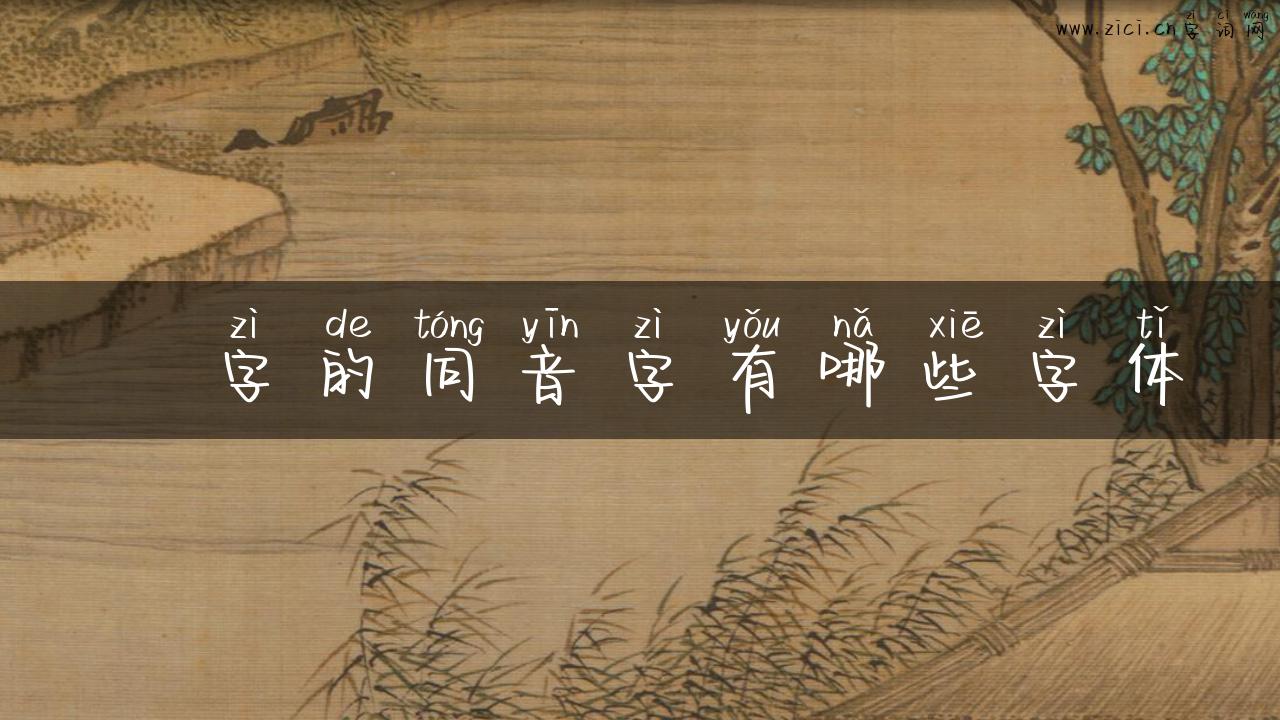 zì cí wǎng
www.zici.cn字词网
zì de tóng yīn zì yǒu nǎ xiē zì tǐ
字的同音字有哪些字体